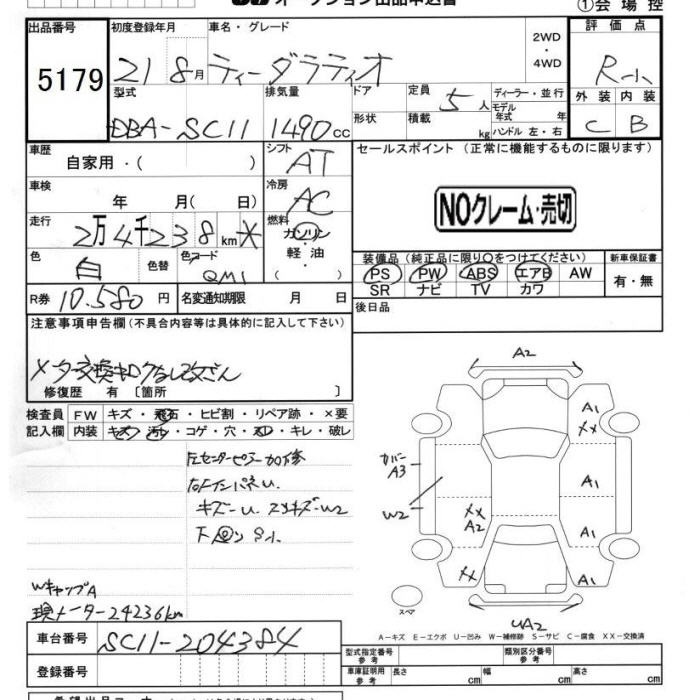 オークション出品申込書
①会場控
出品番号
5179
初度登録年月
21 8月
車名・グレード
ティーダラティオ
2WD
・
4WD
評価点
R-小
型式
DBA-SC11
排気量
1490cc
ドア
形状
定員
5人
積載
kg
ディーラー・並行
モデル
年式 年
ハンドル 左・右
外装 内装
C B
車歴
自家用・( )
シフト
AT
セールスポイント (正常に機能するものに限ります)
NOクレーム・売切
車検
年 月( 日)
冷房
AC
走行
2万4千238km*
燃料
ガソリン
・
軽油
・
( )
色
白
色替
色コード
QM1
装備品 (純正品に限り○をつけてください)
PS PW ABS エアB AW
SR ナビ TV カワ
新車保証書
有・無
R券 10.580円
名変通知期限 月 日
後日品
注意事項申告欄 (不具合内容等は具体的に記入して下さい)
修復歴 有 〔箇所 〕
検査員
記入欄
FW キズ・飛石・ヒビ割・リペア跡・×要
内装 キズ・汚れ・コゲ・穴・スレ・キレ・破レ
左センターピラー加修
キズ-U
Wキャップ A
現メーター24236km
A2
A1
XX
カバー
A3
A1
W2
XX
A2
A1
XX
A1
スペア
UA2
A-キズ E-エクボ U-凹み W-補修跡 S-サビ C-腐食 XX-交換済
車台番号
SC11-204384
登録番号
型式指定番号
参考
類別区分番号
参考
車庫証明用
参考
長さ cm
幅 cm
高さ cm